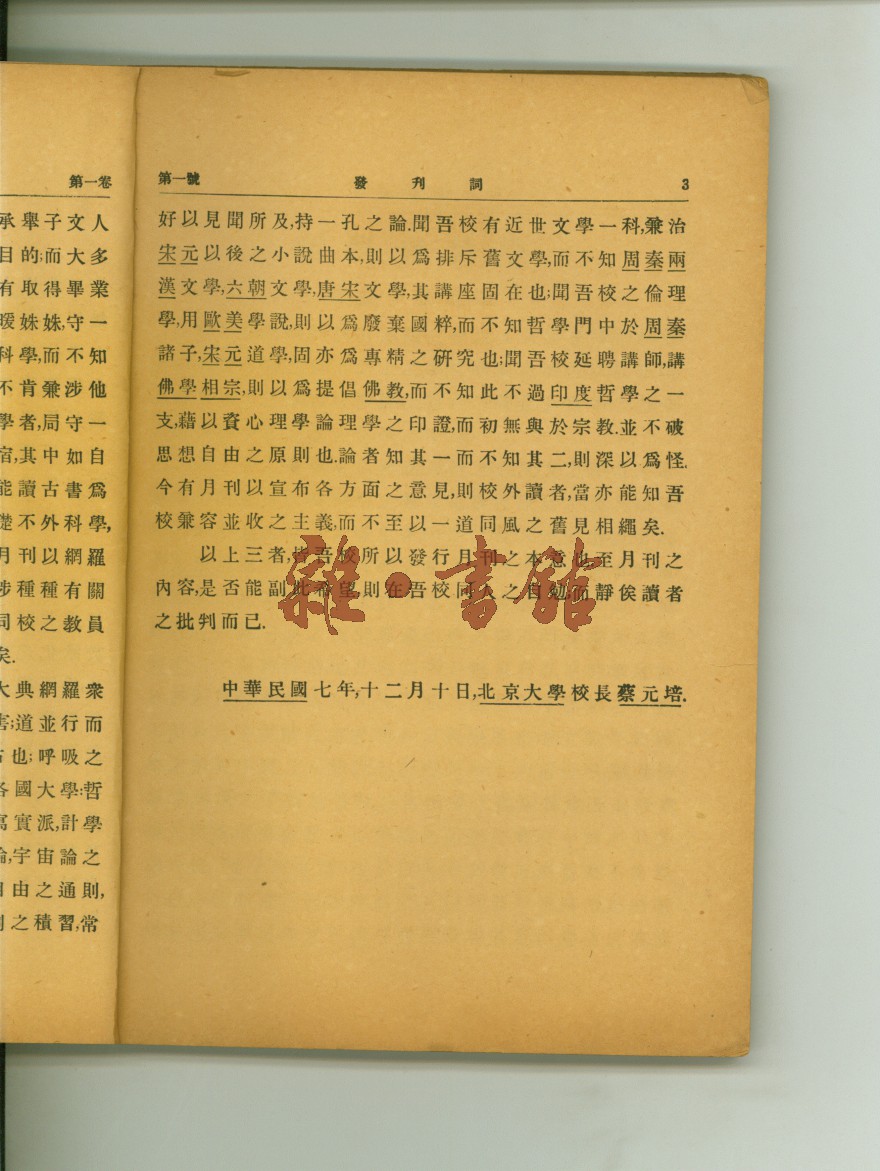 第一卷
承舉子文人
目的;而大多
有取得畢業
暖姝姝,守一
科學,而不知
不肯兼涉他
學者,局守一
宿,其中如自
能讀古書爲
礎不外科學,
月刊以網羅
涉種種有關
司校之教員
矣.
大典網羅衆
害;道並行而
也;呼吸之
各國大學:哲
寫實派,計學
論,宇宙論之
自由之通則,
之積習,常
第一號 發刊詞 3
好以見聞所及,持一孔之論.聞吾校有近世文學一科,兼治
宋元以後之小說曲本,則以爲排斥舊文學,而不知周秦兩
漢文學,六朝文學,唐宋文學,其講座固在也;聞吾校之倫理
學,用歐美學說,則以爲廢棄國粹,而不知哲學門中於周秦
諸子,宋元道學,固亦爲專精之研究也;聞吾校延聘講師,講
佛學相宗,則以爲提倡佛教,而不知此不過印度哲學之一
支,藉以資心理學論理學之印證,而初無與於宗教.並不破
思想自由之原則也.論者知其一而不知其二,則深以爲怪.
今有月刊以宣布各方面之意見,則校外讀者,當亦能知吾
校兼容並收之主義,而不至以一道同風之舊見相繩矣.
以上三者,皆吾校所以發行月刊之本意也至月刊之
內容,是否能副此希望則在吾校同人之自勉;而靜俟讀者
之批判而已.
中華民國七年,十二月十日,北京大學校長蔡元培.
雜·書館